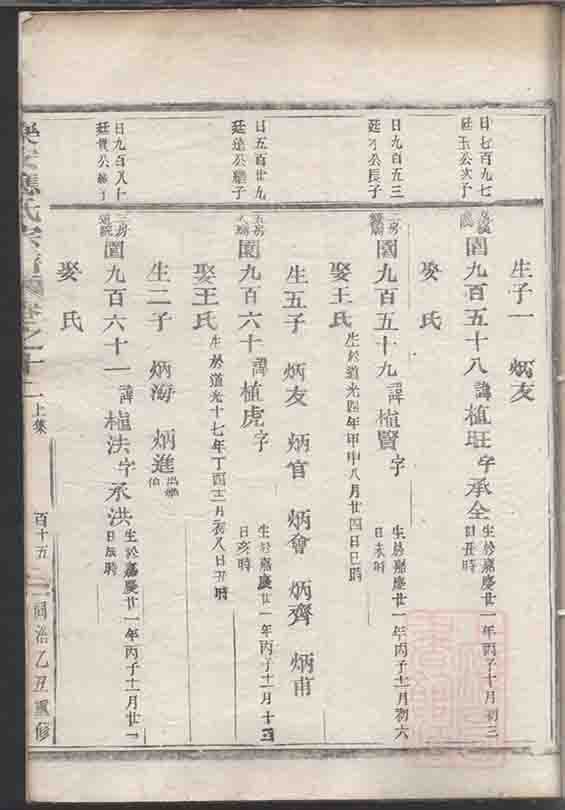 生子一 炳友
日七百九七
廷玉公次子
園九百五十八 諱植旺字承全
生於嘉慶廿一年丙子十月初三
日丑時
娶 氏
日九百五三
廷才公長子
園九百五十九 諱植賢字
生於嘉慶廿一年丙子十一月初六
日未時
娶王氏
生於道光四年甲申八月廿四日巳時
生五子 炳友 炳官 炳會 炳齊 炳甫
日五百廿九
園九百六十 諱植虎字
生於嘉慶廿一年丙子十一月十四
日亥時
娶王氏
生於道光十七年丁酉十二月初八日丑時
生二子 炳海 炳進
日九百八十
園九百六十一 諱植法字承洪
生於嘉慶廿一年丙子十一月廿一
日辰時
娶 氏
應氏宗譜
卷之十二
上集
百十五
同治乙丑重修